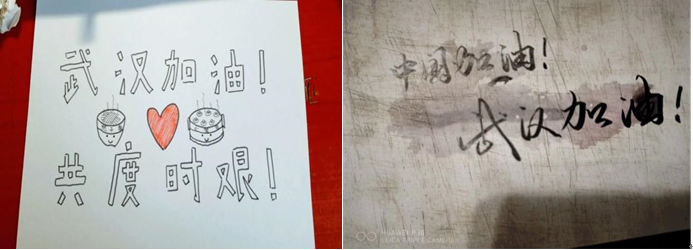 武汉加油！
共度时艰！
中国加油！
武汉加油！
HUAWEI P30
LEICA TRIPLE CAMERA